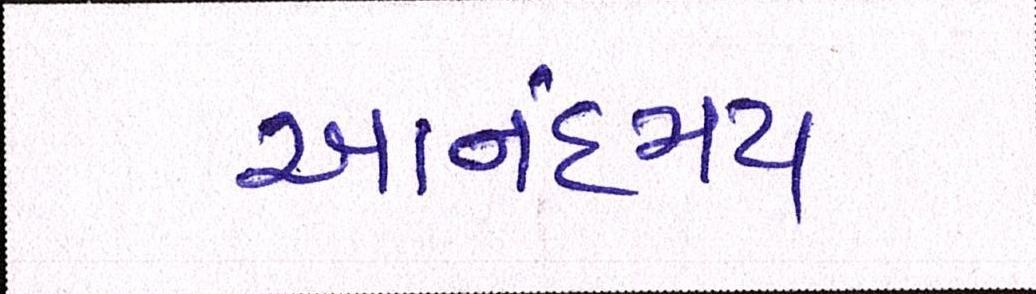 આનંદમય